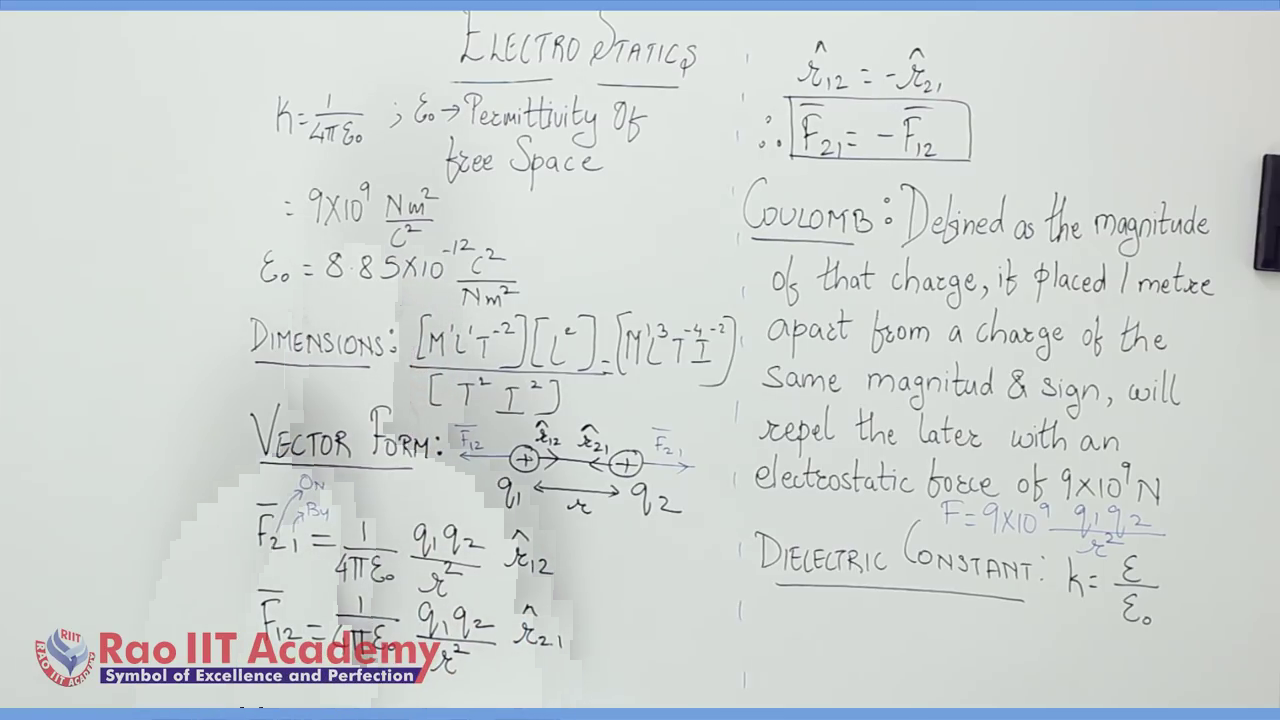 ELECTROSTATICS
K = 1/4πε₀ ; ε₀ → Permittivity Of
free Space
= 9×10⁹ Nm²/C²
ε₀ = 8.85×10⁻¹² C²/Nm²
DIMENSIONS: [M¹L¹T⁻²][L²]/[T² I²] = [M¹L³T⁻⁴I⁻²]
VECTOR FORM:
F̅₁₂ r̂₁₂ r̂₂₁ F̅₂₁
+ +
q₁ r q₂
ON
By
F̅₂₁ = 1/4πε₀ q₁q₂/r² r̂₁₂
F̅₁₂ = 1/4πε₀ q₁q₂/r² r̂₂₁
r̂₁₂ = -r̂₂₁
∴ F̅₂₁ = -F̅₁₂
COULOMB: Defined as the magnitude
of that charge, if placed 1 metre
apart from a charge of the
same magnitud & sign, will
repel the later with an
electrostatic force of 9×10⁹N
F = 9×10⁹ q₁q₂/r²
DIELECTRIC CONSTANT: k = ε/ε₀
RIIT
RAO IIT ACADEMY
Rao IIT Academy
Symbol of Excellence and Perfection